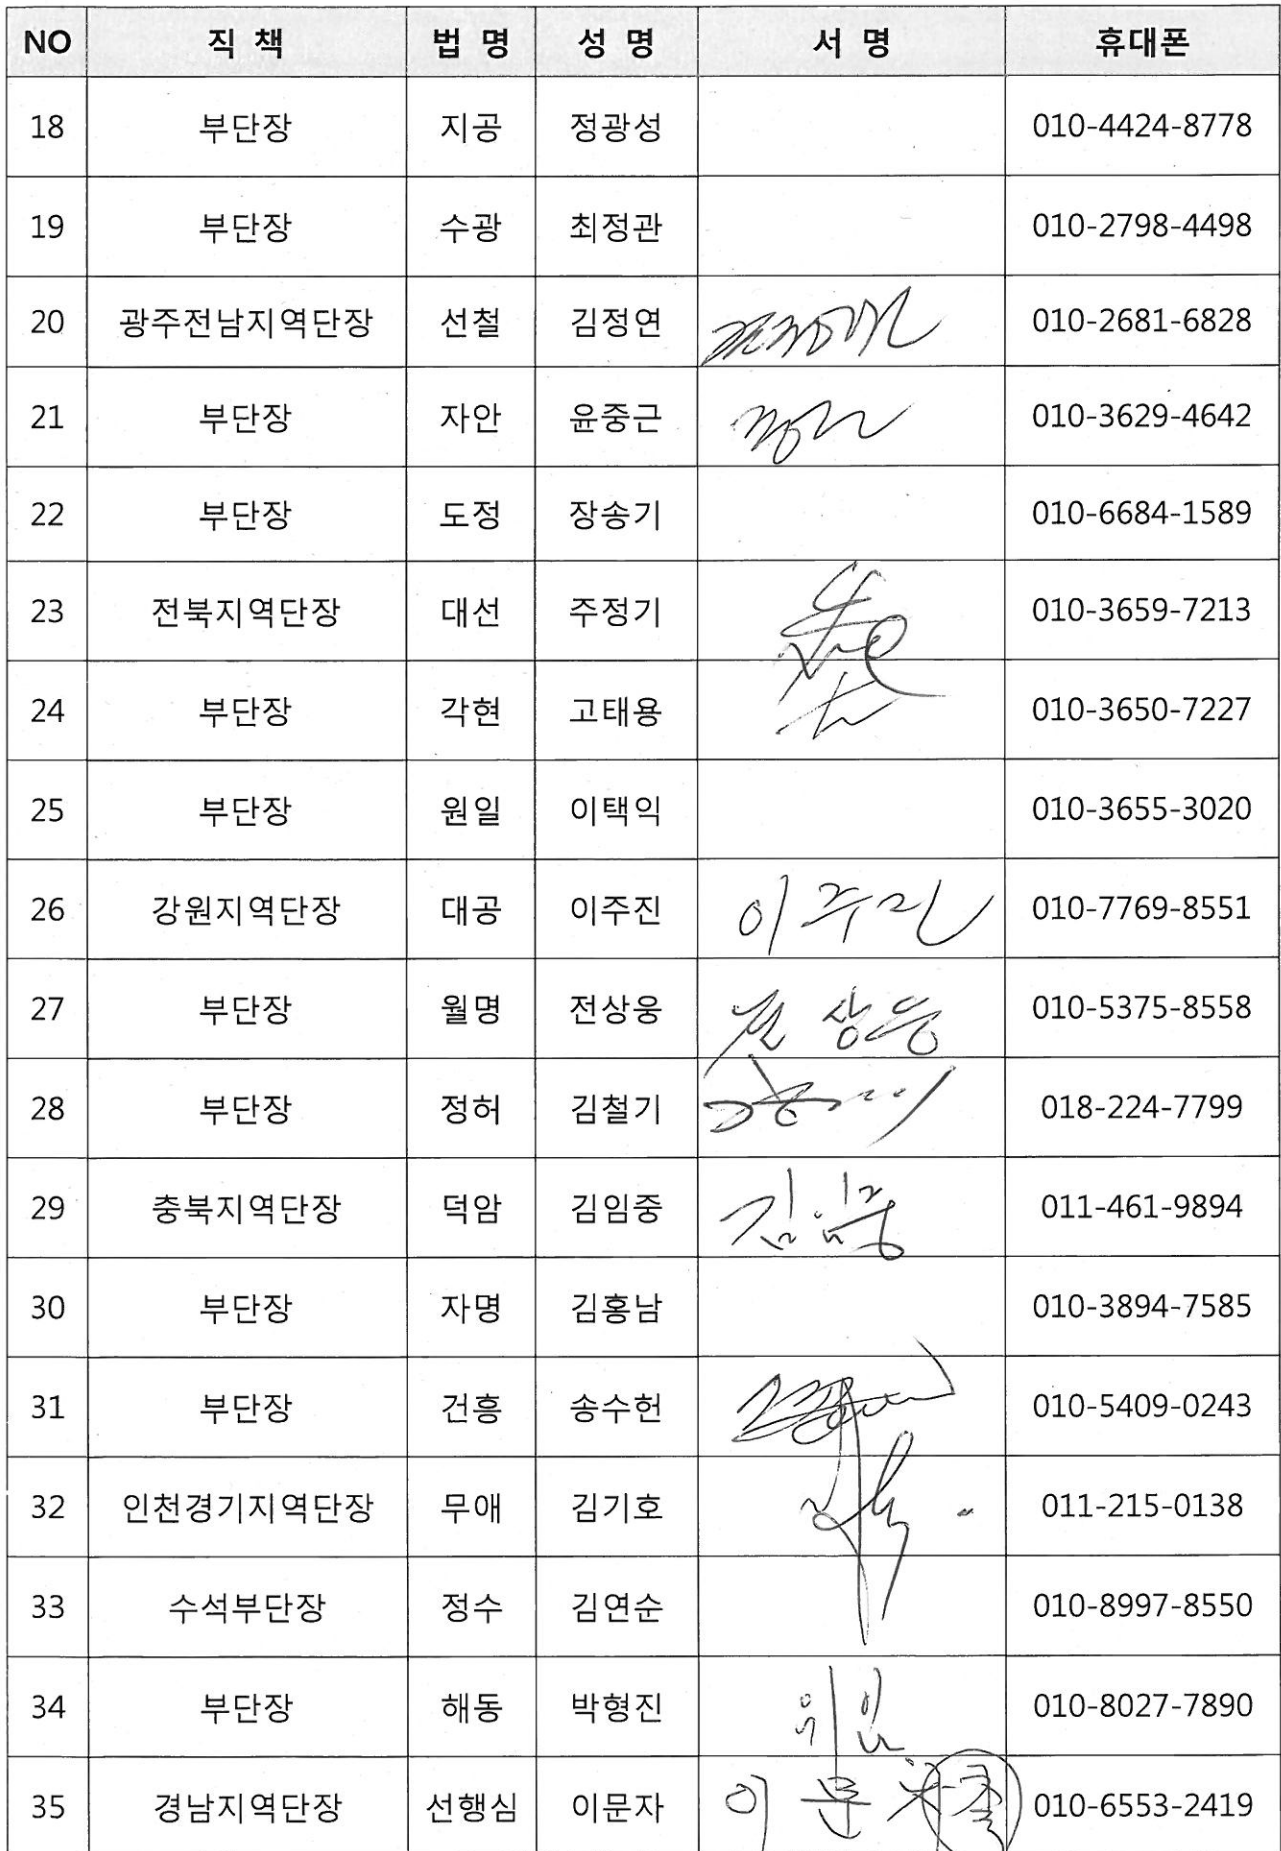 NO 직 책 법 명 성 명 서 명 휴대폰
18 부단장 지공 정광성 010-4424-8778
19 부단장 수광 최정관 010-2798-4498
20 광주전남지역단장 선철 김정연 010-2681-6828
21 부단장 자안 윤중근 010-3629-4642
22 부단장 도정 장송기 010-6684-1589
23 전북지역단장 대선 주정기 010-3659-7213
24 부단장 각현 고태용 010-3650-7227
25 부단장 원일 이택익 010-3655-3020
26 강원지역단장 대공 이주진 이주진 010-7769-8551
27 부단장 월명 전상웅 전상웅 010-5375-8558
28 부단장 정허 김철기 018-224-7799
29 충북지역단장 덕암 김임중 김임중 011-461-9894
30 부단장 자명 김홍남 010-3894-7585
31 부단장 건흥 송수헌 010-5409-0243
32 인천경기지역단장 무애 김기호 011-215-0138
33 수석부단장 정수 김연순 010-8997-8550
34 부단장 해동 박형진 위임 010-8027-7890
35 경남지역단장 선행심 이문자 이문자 010-6553-2419